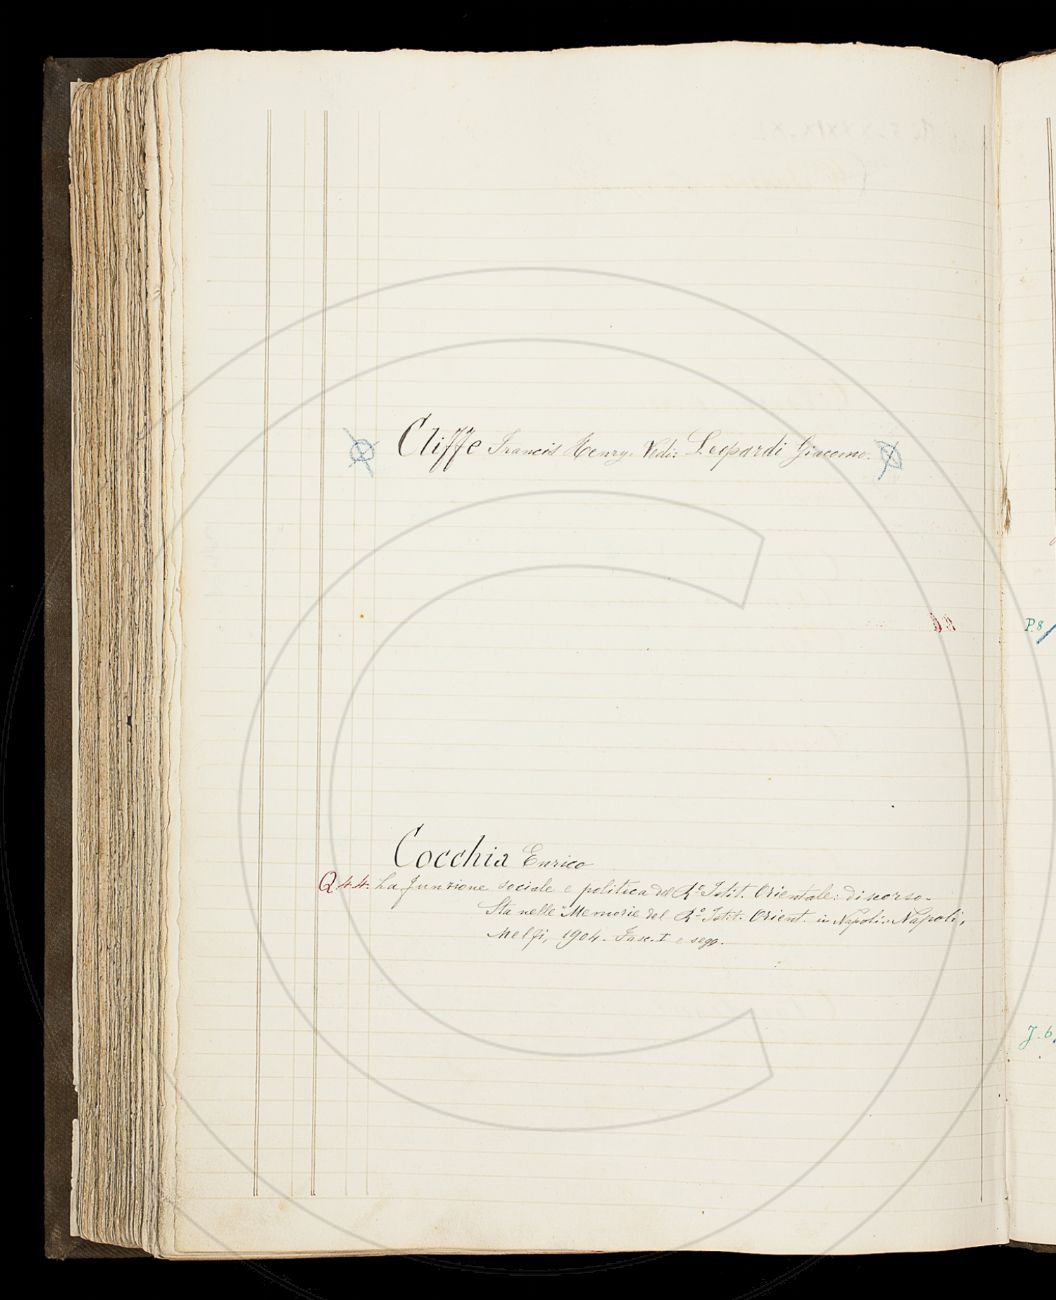 Cliffe Francis Henry. Vedi: Leopardi Giacomo.
Cocchia Enrico
Q 4.4. La funzione sociale e politica del R.° Istit. Orientale: discorso.
Sta nelle Memorie del R.° Istit. Orient. in Napoli. Napoli,
Melfi, 1904. Fasc. I e segg.
P. 8
J. 6